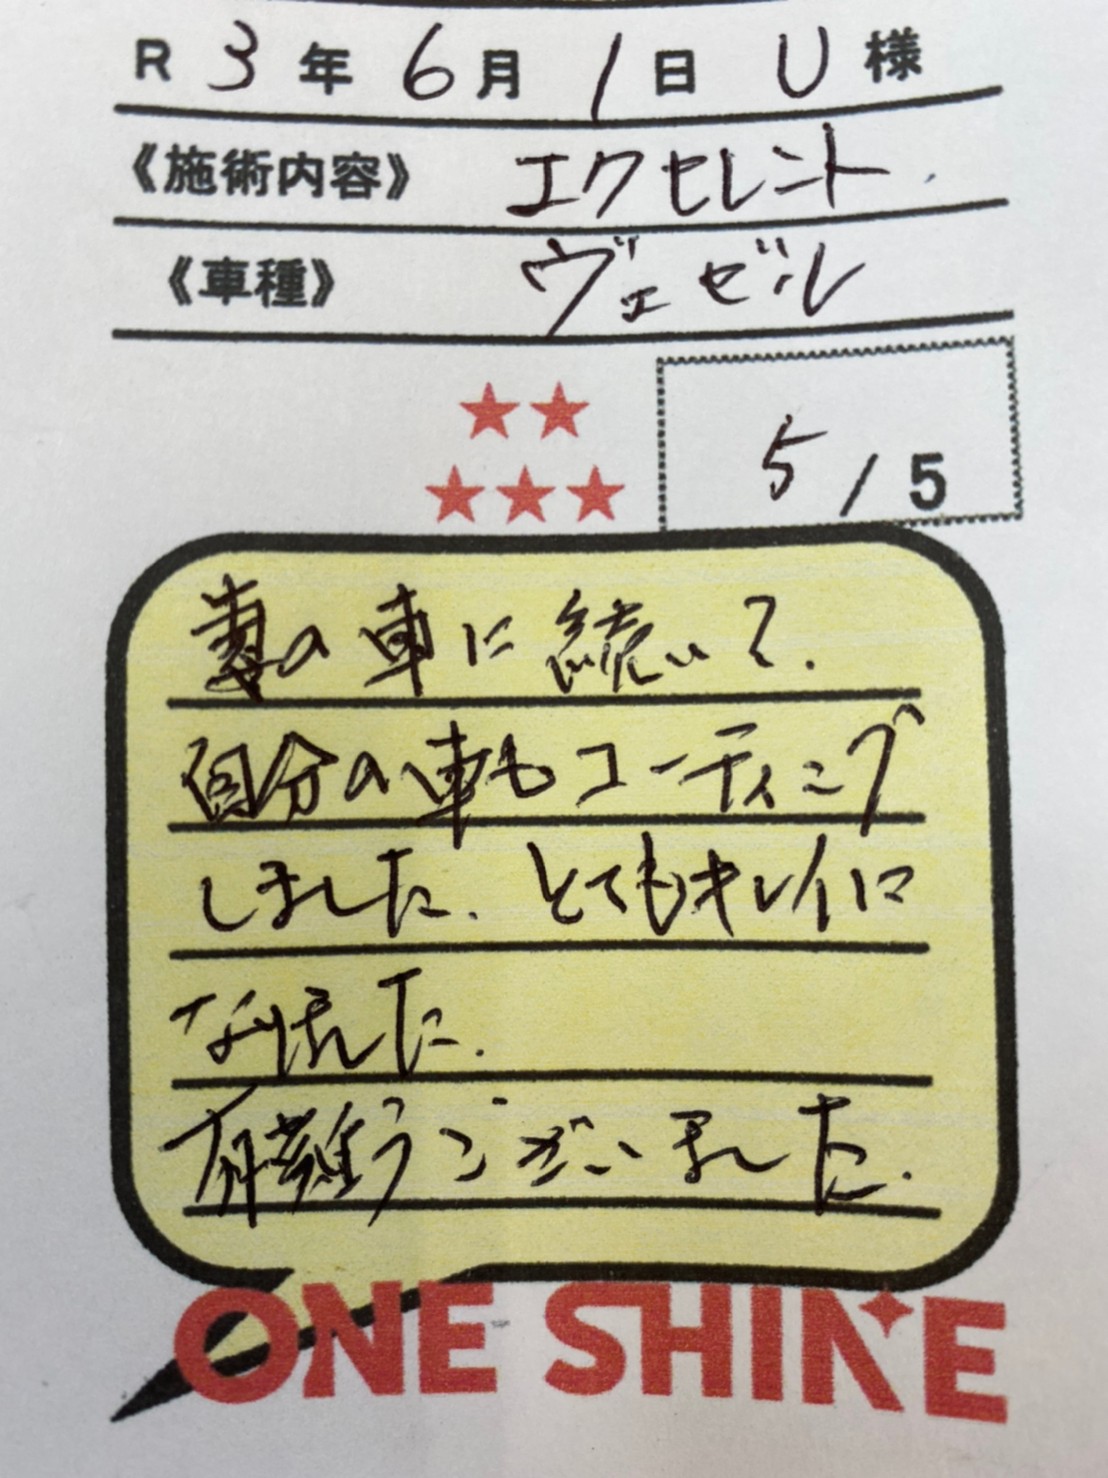 R 3年 6月 1日 U 様
《施術内容》 エクセレント.
《車種》 ヴェゼル
5 / 5
妻の車に続いて.
自分の車もコーティング
しました. とてもキレイに
なりました.
有難うございました.
ONE SHINE